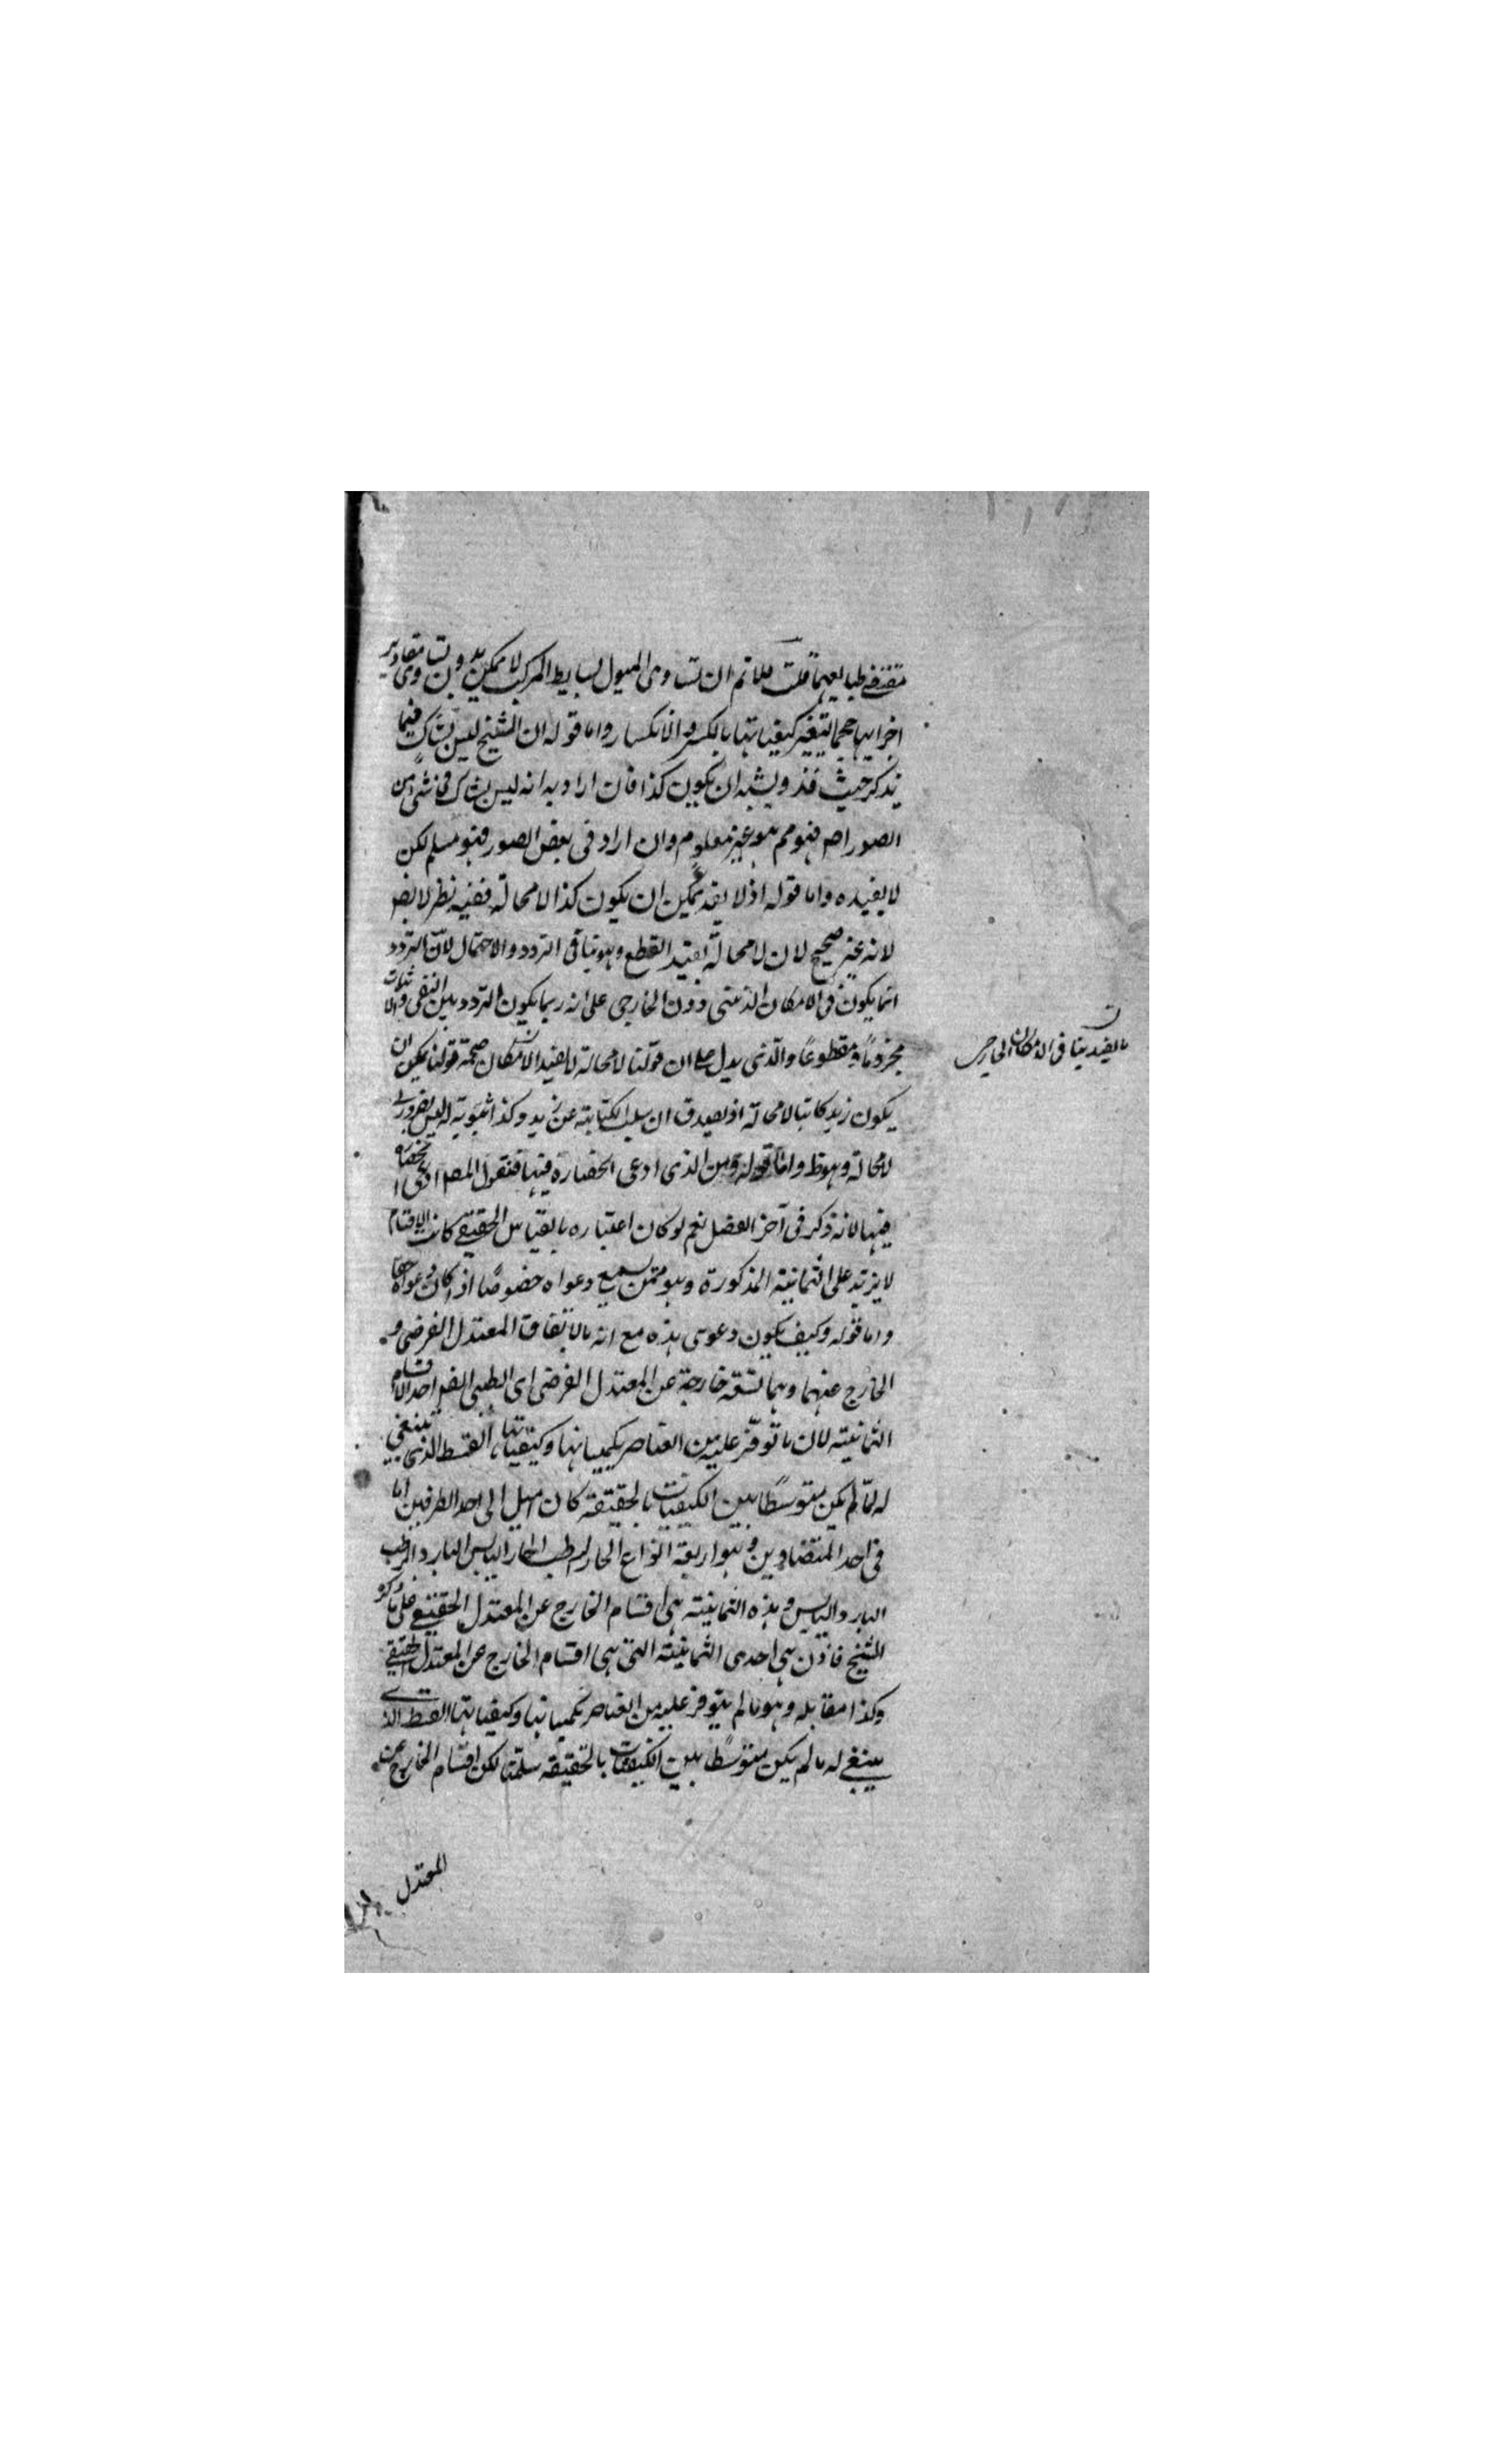 مقتضى طبايعهما قلت فلانم ان تساوى الميول لبسايط المركب لا يمكن بدون تساوى مقادير
اجزايها حجما لتغير كيفياتها بالكسر والانكسار واما قوله ان الشيخ ليس بشاك فيما
يذكر حيث قد ويشبه ان يكون كذا فان اراد به انه ليس بشاك فى شى من
الصور اصلا فهو مم هو غير معلوم وان اراد فى بعض الصور فهو مسلم لكن
لا يفيده واما قوله اذ لا يمكن ان يكون كذا لا محالة ففيه نظر
لانه غير صحيح لان لا محالة يفيد القطع وهو ينافى التردد والاحتمال لان التردد
انما يكون فى الامكان الذهنى دون الخارجى على انه ربما يكون التردد بين النفى والاثبات
مجزوما ومقطوعا والذى يدل على ان قولنا لا محالة لا يفيد الامكان صحة قولنا يمكن ان
يكون زيد كاتبا لا محالة اذ يصدق ان سلب الكتابة عن زيد وكذا ثبوته له ليس بضرورى
لا محالة وهو ظ واما قوله ومن الذى ادعى انحصاره فيها فنقول المص ادعى انحصاره
فيها لانه ذكر فى آخر الفصل نعم لو كان اعتباره بالقياس الحقيقى كانت الاقسام
لا يزيد على الثمانية المذكورة وهو ممن يسمع دعواه خصوصًا اذا كان دعواه حقا
واما قوله وكيف يكون دعوى هذه مع انه بالاتفاق المعتدل الفرضى و
الخارج عنهما وهما تسعة خارجة عن المعتدل الفرضى اى الطبى احد الاقسام
الثمانية لان ما توفر عليه من العناصر بكمياتها وكيفياتها القسط الذى ينبغى
له لمّا لم يكن متوسطًا بين الكيفيات بالحقيقة كان اميل الى احد الطرفين اما
فى احد المتضادين وهو اربعة انواع الحار الرطب الحار اليابس البارد الرطب
البارد اليابس وهذه الثمانية هى اقسام الخارج عن المعتدل الحقيقى على ما ذكره
الشيخ فاذن هى احدى الثمانية التى هى اقسام الخارج عن المعتدل الحقيقى
وكذا مقابله وهو ما لم يتوفر عليه من العناصر بكمياتها وكيفياتها القسط الذى
ينبغى له ما لم يكن متوسطًا بين الكيفيات بالحقيقة سلمنا لكن اقسام الخارج عن
المعتدل
ما يفيد ينافى الامكان الخارجى